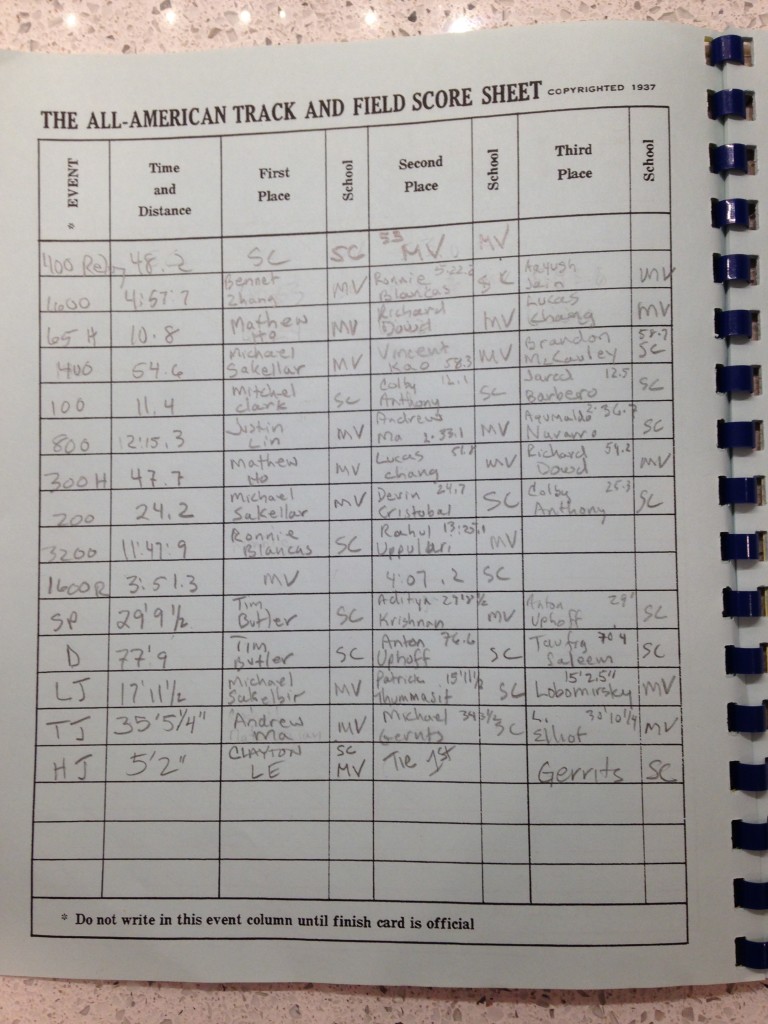 THE ALL-AMERICAN TRACK AND FIELD SCORE SHEET COPYRIGHTED 1937
* EVENT Time and Distance First Place School Second Place School Third Place School
400 Relay 48.2 SC SC 53 MV MV
1600 4:57:7 Bennet Zhang MV Ronnie Blancas 5:22.2 SC Aayush Jain MV
65 H 10.8 Mathew Ho MV Richard Dowd MV Lucas Chang MV
400 54.6 Michael Sakellar MV Vincent Kao 58.3 MV Brandon McCauley 58.7 SC
100 11.4 Mitchel Clark SC Colby Anthony 12.1 SC Jared Barbero 12.5 SC
800 12:15.3 Justin Lin MV Andrew Ma 2:53.1 MV Navarro 2:36.7 SC
300 H 47.7 Mathew Ho MV Lucas Chang 51.8 MV Richard Dowd 54.2 MV
200 24.2 Michael Sakellar MV Devin Cristobal 24.7 SC Colby Anthony 25.3 SC
3200 11:47:9 Ronnie Blancas SC Rahul Uppuluri MV
1600R 3:51.3 MV 4:07.2 SC
SP 29'9½ Tim Butler SC Aditya Krishnan 29'8½ MV Anton Uphoff 29' SC
D 77'9 Tim Butler SC Anton Uphoff 76.6 SC Saleem 70'4 SC
LJ 17'11½ Michael MV Patrick Thummasit 15'11½ SC 15'2.5" Lobomirsky MV
TJ 35'5¼" Andrew Ma MV Michael Gerrits SC L. Elliot 30'10¼ MV
HJ 5'2" CLAYTON LE SC MV Tie 1st Gerrits SC
* Do not write in this event column until finish card is official